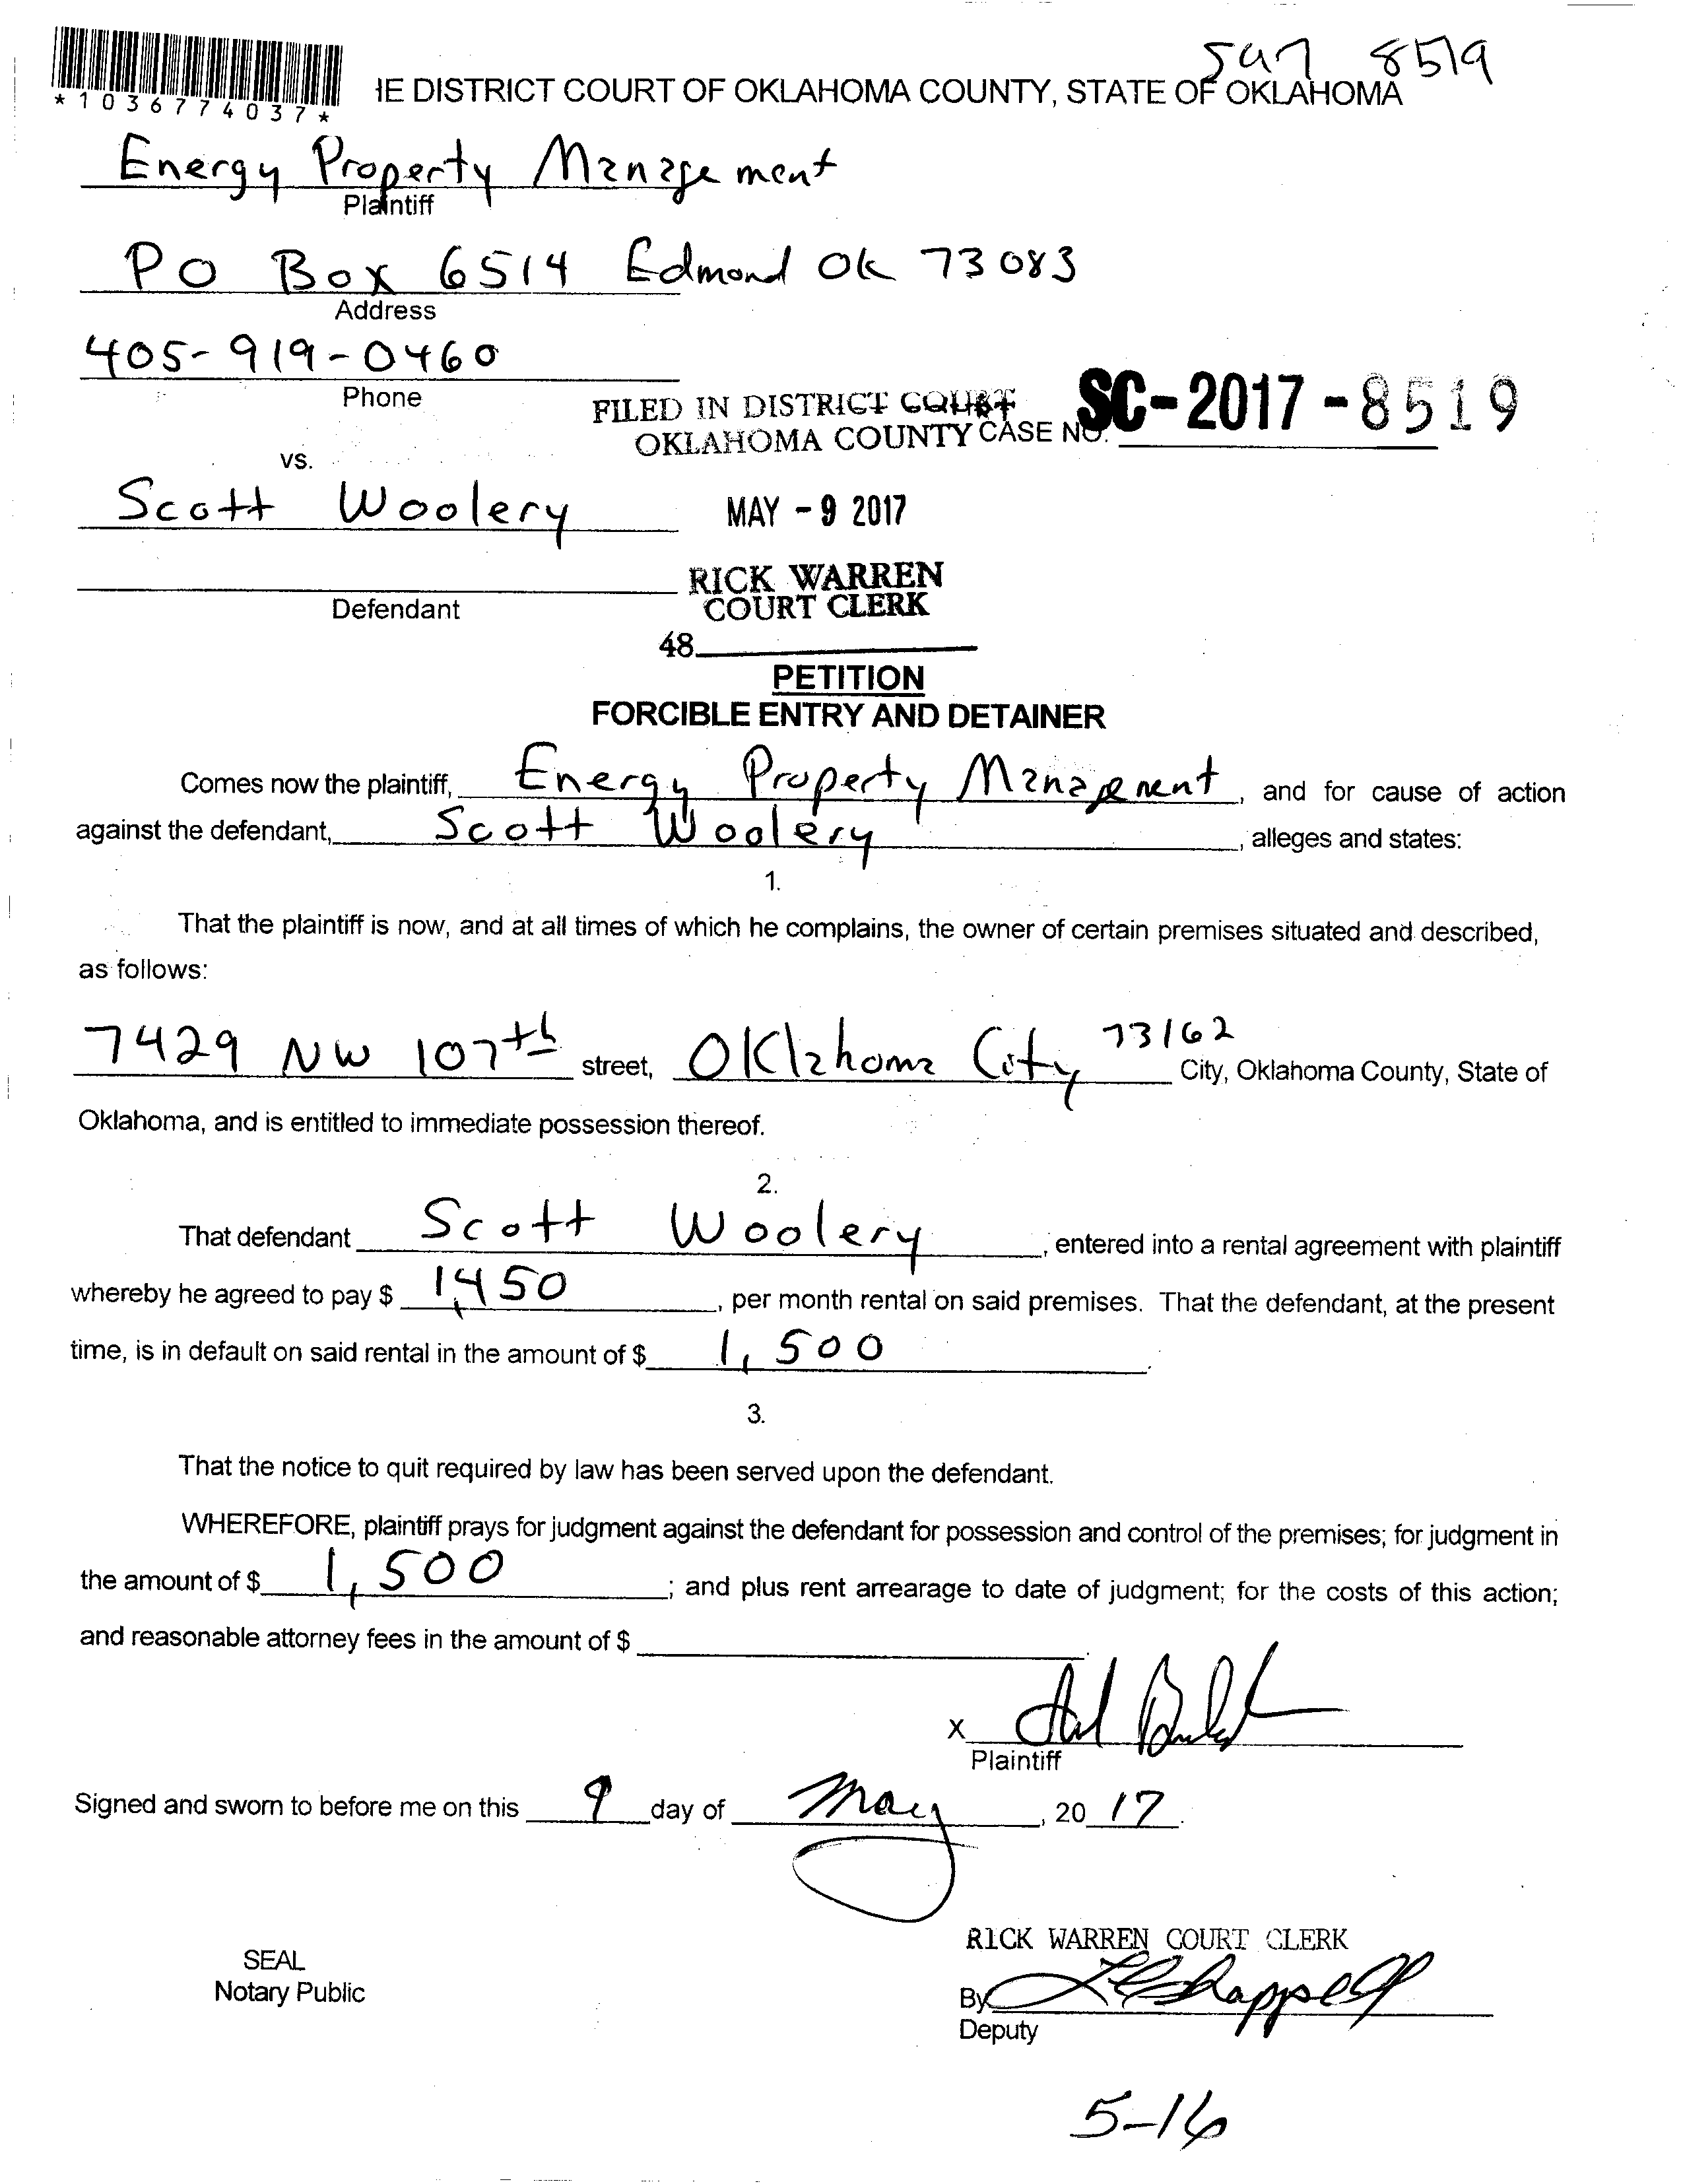 8519
*1036774037*
IE DISTRICT COURT OF OKLAHOMA COUNTY, STATE OF OKLAHOMA
Energy Property Management
Plaintiff
PO Box 6514 Edmond OK 73083
Address
405-919-0460
Phone
FILED IN DISTRICT COURT
OKLAHOMA COUNTY CASE NO. SC-2017-8519
vs.
Scott Woolery
MAY - 9 2017
RICK WARREN
COURT CLERK
Defendant
48
PETITION
FORCIBLE ENTRY AND DETAINER
Comes now the plaintiff, Energy Property Management, and for cause of action
against the defendant, Scott Woolery, alleges and states:
1.
That the plaintiff is now, and at all times of which he complains, the owner of certain premises situated and described,
as follows:
7429 NW 107th street, Oklahoma City 73162 City, Oklahoma County, State of
Oklahoma, and is entitled to immediate possession thereof.
2.
That defendant Scott Woolery, entered into a rental agreement with plaintiff
whereby he agreed to pay $ 1,450, per month rental on said premises. That the defendant, at the present
time, is in default on said rental in the amount of $ 1,500.
3.
That the notice to quit required by law has been served upon the defendant.
WHEREFORE, plaintiff prays for judgment against the defendant for possession and control of the premises; for judgment in
the amount of $ 1,500; and plus rent arrearage to date of judgment; for the costs of this action;
and reasonable attorney fees in the amount of $
x
Plaintiff
Signed and sworn to before me on this 9 day of May, 20 17.
RICK WARREN COURT CLERK
SEAL
Notary Public
By
Deputy
5-16